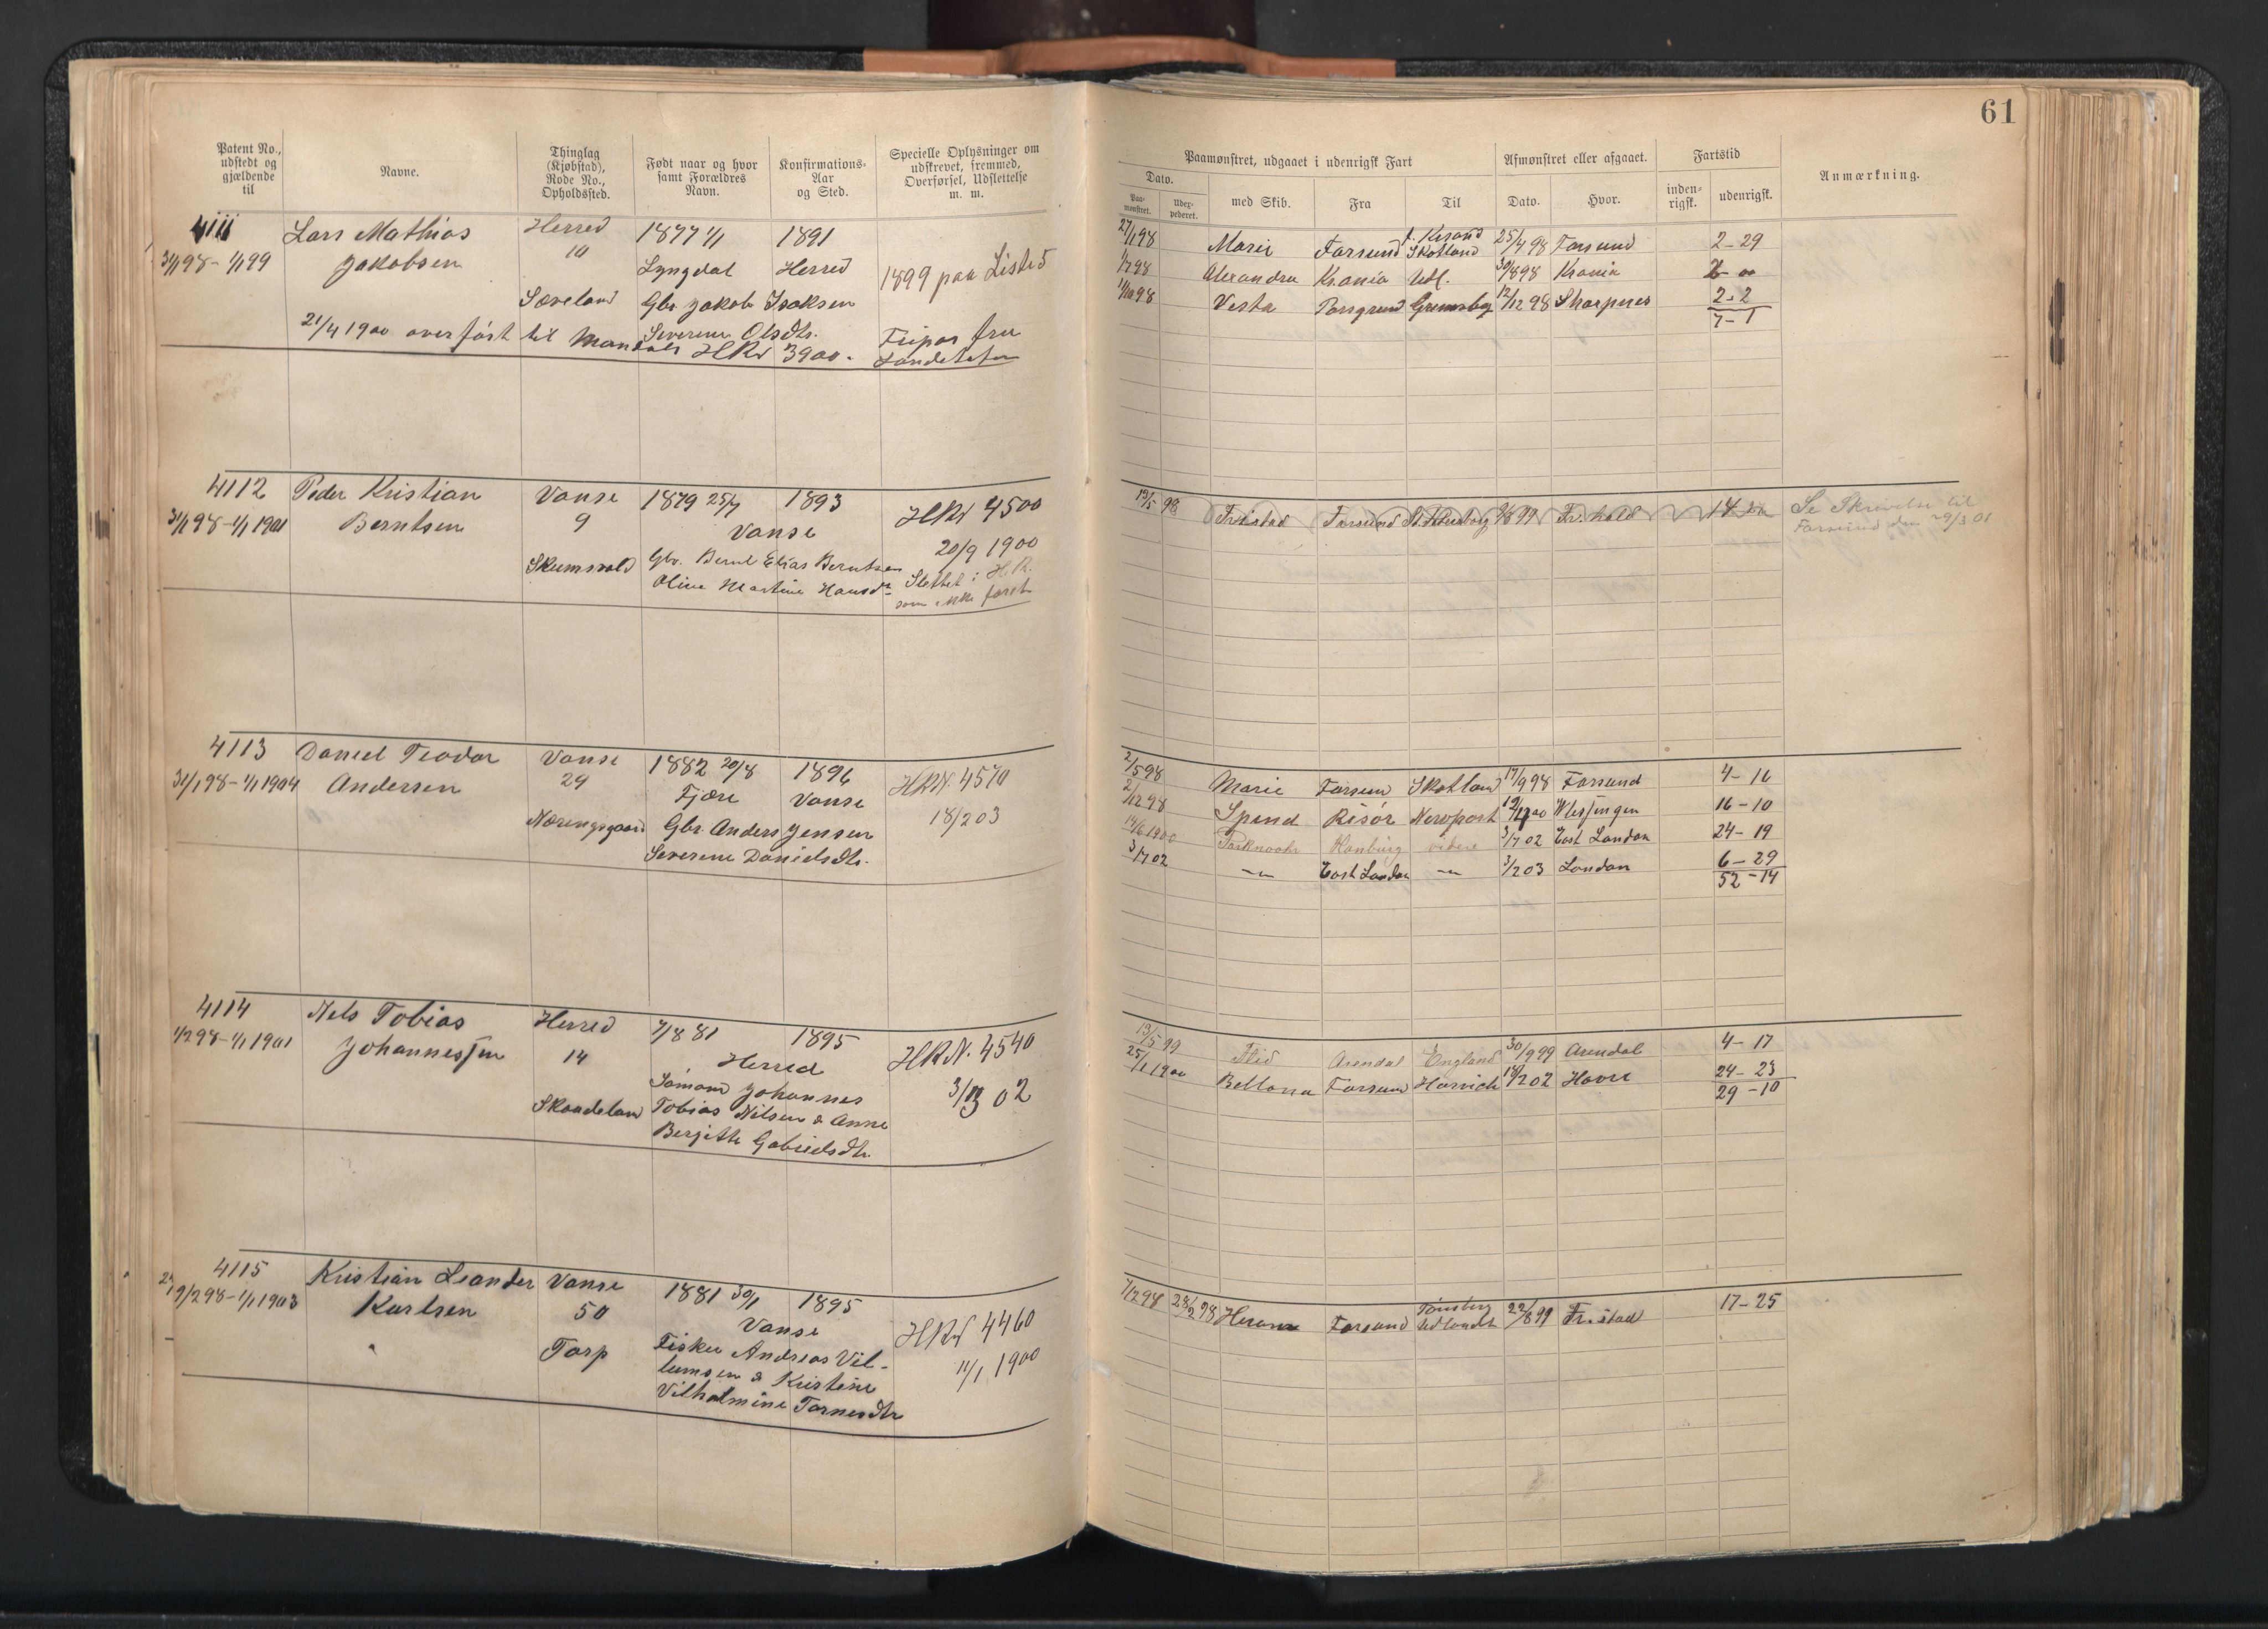 61
Patent No., udstedt og gjældende til
Navne.
Thinglag (Kjøbstad), Rode No., Opholdssted.
Født naar og hvor samt Forældres Navn.
Konfirmations-Aar og Sted.
Specielle Oplysninger om udskrevet, fremmed, Overførsel, Udslettelse m. m.
Paamønstret, udgaaet i udenrigsk Fart
Afmønstret eller afgaaet.
Fartstid
Anmærkning.
Dato.
Paa-mønstret.
Uder-pederet.
med Skib.
Fra
Til
Dato.
Hvor.
inden-rigsk.
udenrigsk.
4111 Lars Mathias Herred 1877 1/1 1891
31/1 98 - 1/1 99 Jakobsen 10 Lyngdal Herred 1899 paa Listed
Sæveland Gbr Jakob Isaksen
Severine Olsdtr.
21/4 1900 overført til Mandals HRN 3900.
27/1 98 Marie Farsund Skotland 25/4 98 Farsund 2-29
1/7 98 Alexandra Krania Udl. 30/8 98 Krania
98 Vesta Porsgrund Grimsby 12/12 98 Skarpnes 2-2
7-1
4112 Peder Kristian Vanse 1879 25/7 1893 HRN 4500
31/1 98 - 1/1 1901 Berntsen 9 Vanse 20/9 1900
Skumsvold Gbr. Bernt Elias Berntsen Slettet i H.R.
Oline Martine Hansd. som ikke
19/5 98 Fr.stad Farsund St. Petersborg Fr.hald Se Skrivelse til
Farsund den 29/3 01
4113 Daniel Teodor Vanse 1882 20/8 1896 HRN. 4570
31/1 98 - 1/1 1904 Andersen 29 Fjære Vanse 18/2 03
Nærengsgaard Gbr. Anders Jensen
Severine Danielsdtr.
2/5 98 Marie Farsun Skotland 17/9 98 Farsund 4-16
2/12 98 Spend Risør Newport 00 Vlessingen 16-10
14/6 1900 Hamburg videre 3/7 02 East London 24-19
3/7 02 -"- East London -"- 3/2 03 London 6-29
52-14
4114 Nels Tobias Herred 7/8 81 1895 HRN. 4540
1/2 98 - 1/1 1901 Johannessen 14 Herred 3/3 02
Sømand Johannes
Skaadeland Tobias Nilsen & Anne
Bergitte Gabrielsdtr.
13/5 99 Flid Arendal England 30/9 99 Arendal 4-17
25/1 1900 Bellona Farsun Harvich 18/2 02 Havre 24-23
29-10
4115 Kristian Leander Vanse 1881 30/1 1895
19/2 98 - 1/1 1903 Karlsen 50 Vanse HRN 4460
Torp Fisker Andreas Vil-
lumsen & Kristine 11/1 1900
Vilhelmine Tarnesdtr
7/12 98 28/2 98 Farsund Tønsberg Udlandet 22/8 99 Fr.stad 17-25